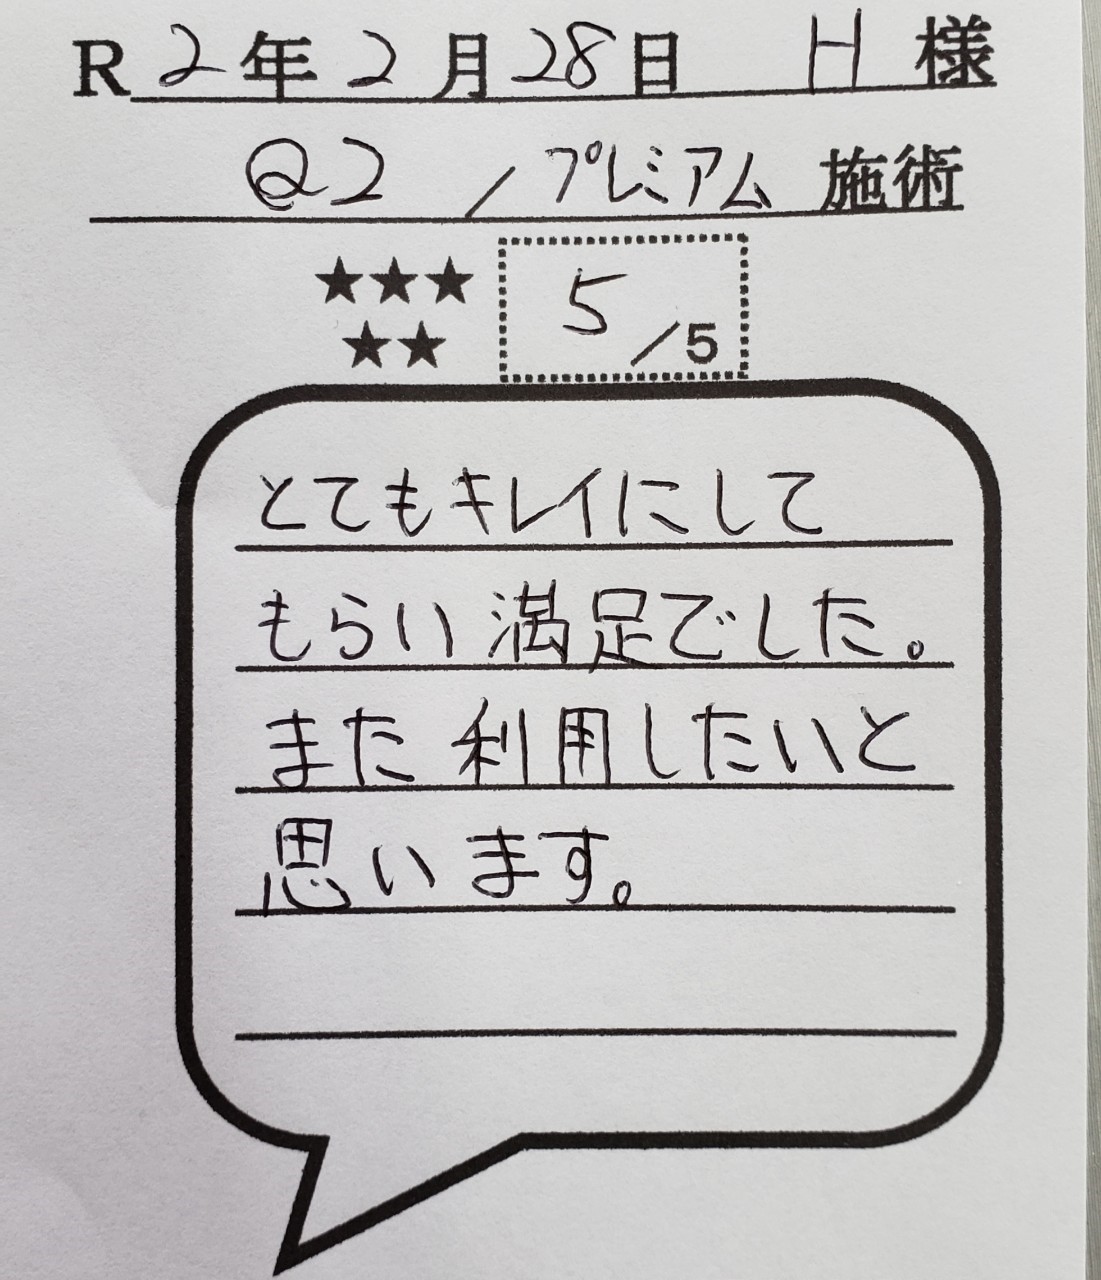 R2年2月28日 H様
Q2/プレミアム 施術
★★★
★★
5/5
とてもキレイにして
もらい満足でした。
また利用したいと
思います。